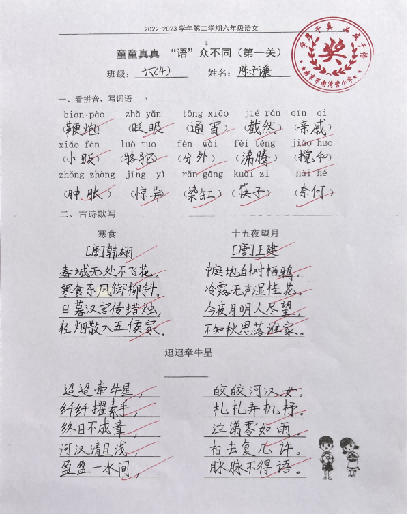 2022-2023学年第二学期六年级语文
童童真真 “语”众不同（第一关）
班级： 姓名：
一、看拼音，写词语
biān pào zhǎ yǎn tōng xiāo jié rán qīn qi
(鞭炮) (眨眼) (通宵) (截然) (亲戚)
xiǎo fàn luò tuo fèn wài fèi téng jiǎo huo
(小贩) (骆驼) (分外) (沸腾) (搅和)
zhǒng zhàng jīng yà rǎn gāng kuài zi nài hé
(肿胀) (惊讶) (染缸) (筷子) (奈何)
二、古诗默写
寒食 十五夜望月
[唐]韩翃 [唐]王建
春城无处不飞花， 中庭地白树栖鸦，
寒食东风御柳斜。 冷露无声湿桂花。
日暮汉宫传蜡烛， 今夜月明人尽望，
轻烟散入五侯家。 不知秋思落谁家。
迢迢牵牛星
迢迢牵牛星， 皎皎河汉女。
纤纤擢素手， 札札弄机杼。
终日不成章， 泣涕零如雨。
河汉清且浅， 相去复几许。
盈盈一水间， 脉脉不得语。